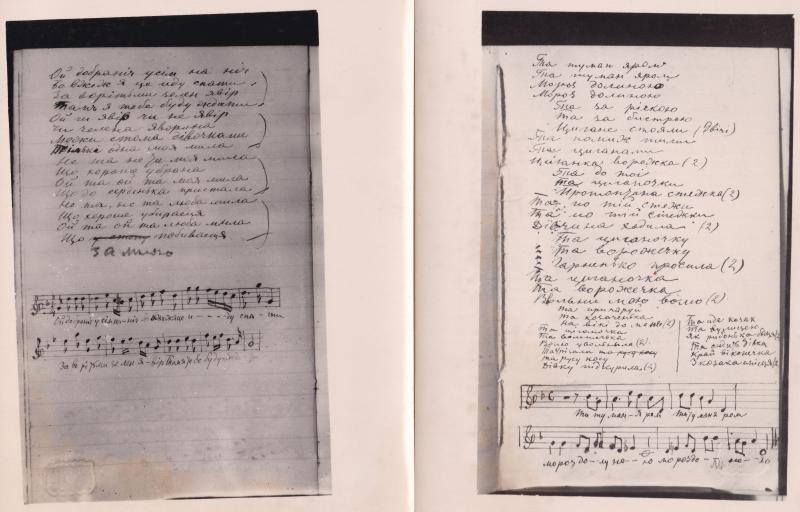 Ой добраніч усім на ніч
Бо вжеж я це иду спати
За ворітьми зелен явір
я тебе буду ждати
Ой чи явір чи не явір
Чи зелена яворина
Междки двома дівочками
одна моя мила
Не та не та моя мила
Що хороше убрана
Ой та ой та моя мила
Що до серденька пристала
Не та, не та люба мила
Що хороше убірацця
Ой та ой та люба мила
Що побиваєця
за мною
Ой добраніч усім на ніч вжеж я це и - - - - ду спа - ти
За во рі тьми зе лен я - вір
Та туман яром
Та туман яром
Мороз долиною
Мороз долиною
Та за річкою
та за бистрою
Цигане стояли (двічі)
Та поміж тими
Та циганами
Циганка ворожка (2)
Та до тої
та циганочки
Протоптана стежка (2)
Та по тій стежи
Та по тій стежки
Дівчина ходила (2)
Та циганочку
Та ворожечку
Гарненько просила (2)
Та циганочка
Та ворожечка
Вольни мою волю (2)
та причаруй
та козаченька
на вікі до мене (2)
та циганочка
Та
Волю уволнила (2)
та русу косу
Дівку підкурила (2)
Та иде козак
Та вулицею
Як рибонька
Та стоїть дівка
Край віконечка
З козака
Та туман - я ром та туман я ром
мороз до - ли но - ю мороз до - ли но - ю